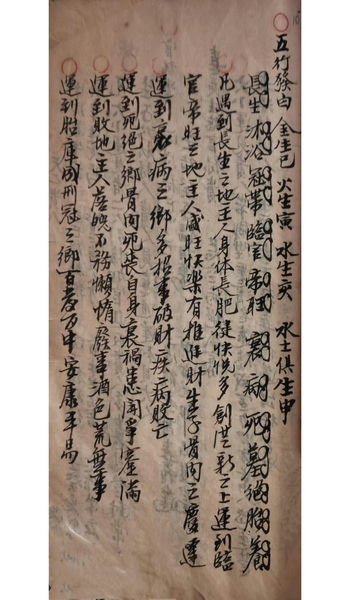 五行發白 金生巳 火生寅 水生亥 水土俱生申
長生 沐浴 冠帶 臨官 帝旺 衰 病 死 墓 絕 胎 養
凡遇到長生之地主人身体長肥徒快悅多創洪新之上運到臨
官帝旺之地主人盛旺快樂有推進財生子骨肉之慶運
運到衰病之鄉多招事破財疾病敗亡
運到死絕之鄉骨肉死喪自身衰禍患閗爭壅滿
運到敗地主人虛魄不務懶惰廢事酒色荒無事
運到胎庫成刑冠之鄉百巻万中安康平昜